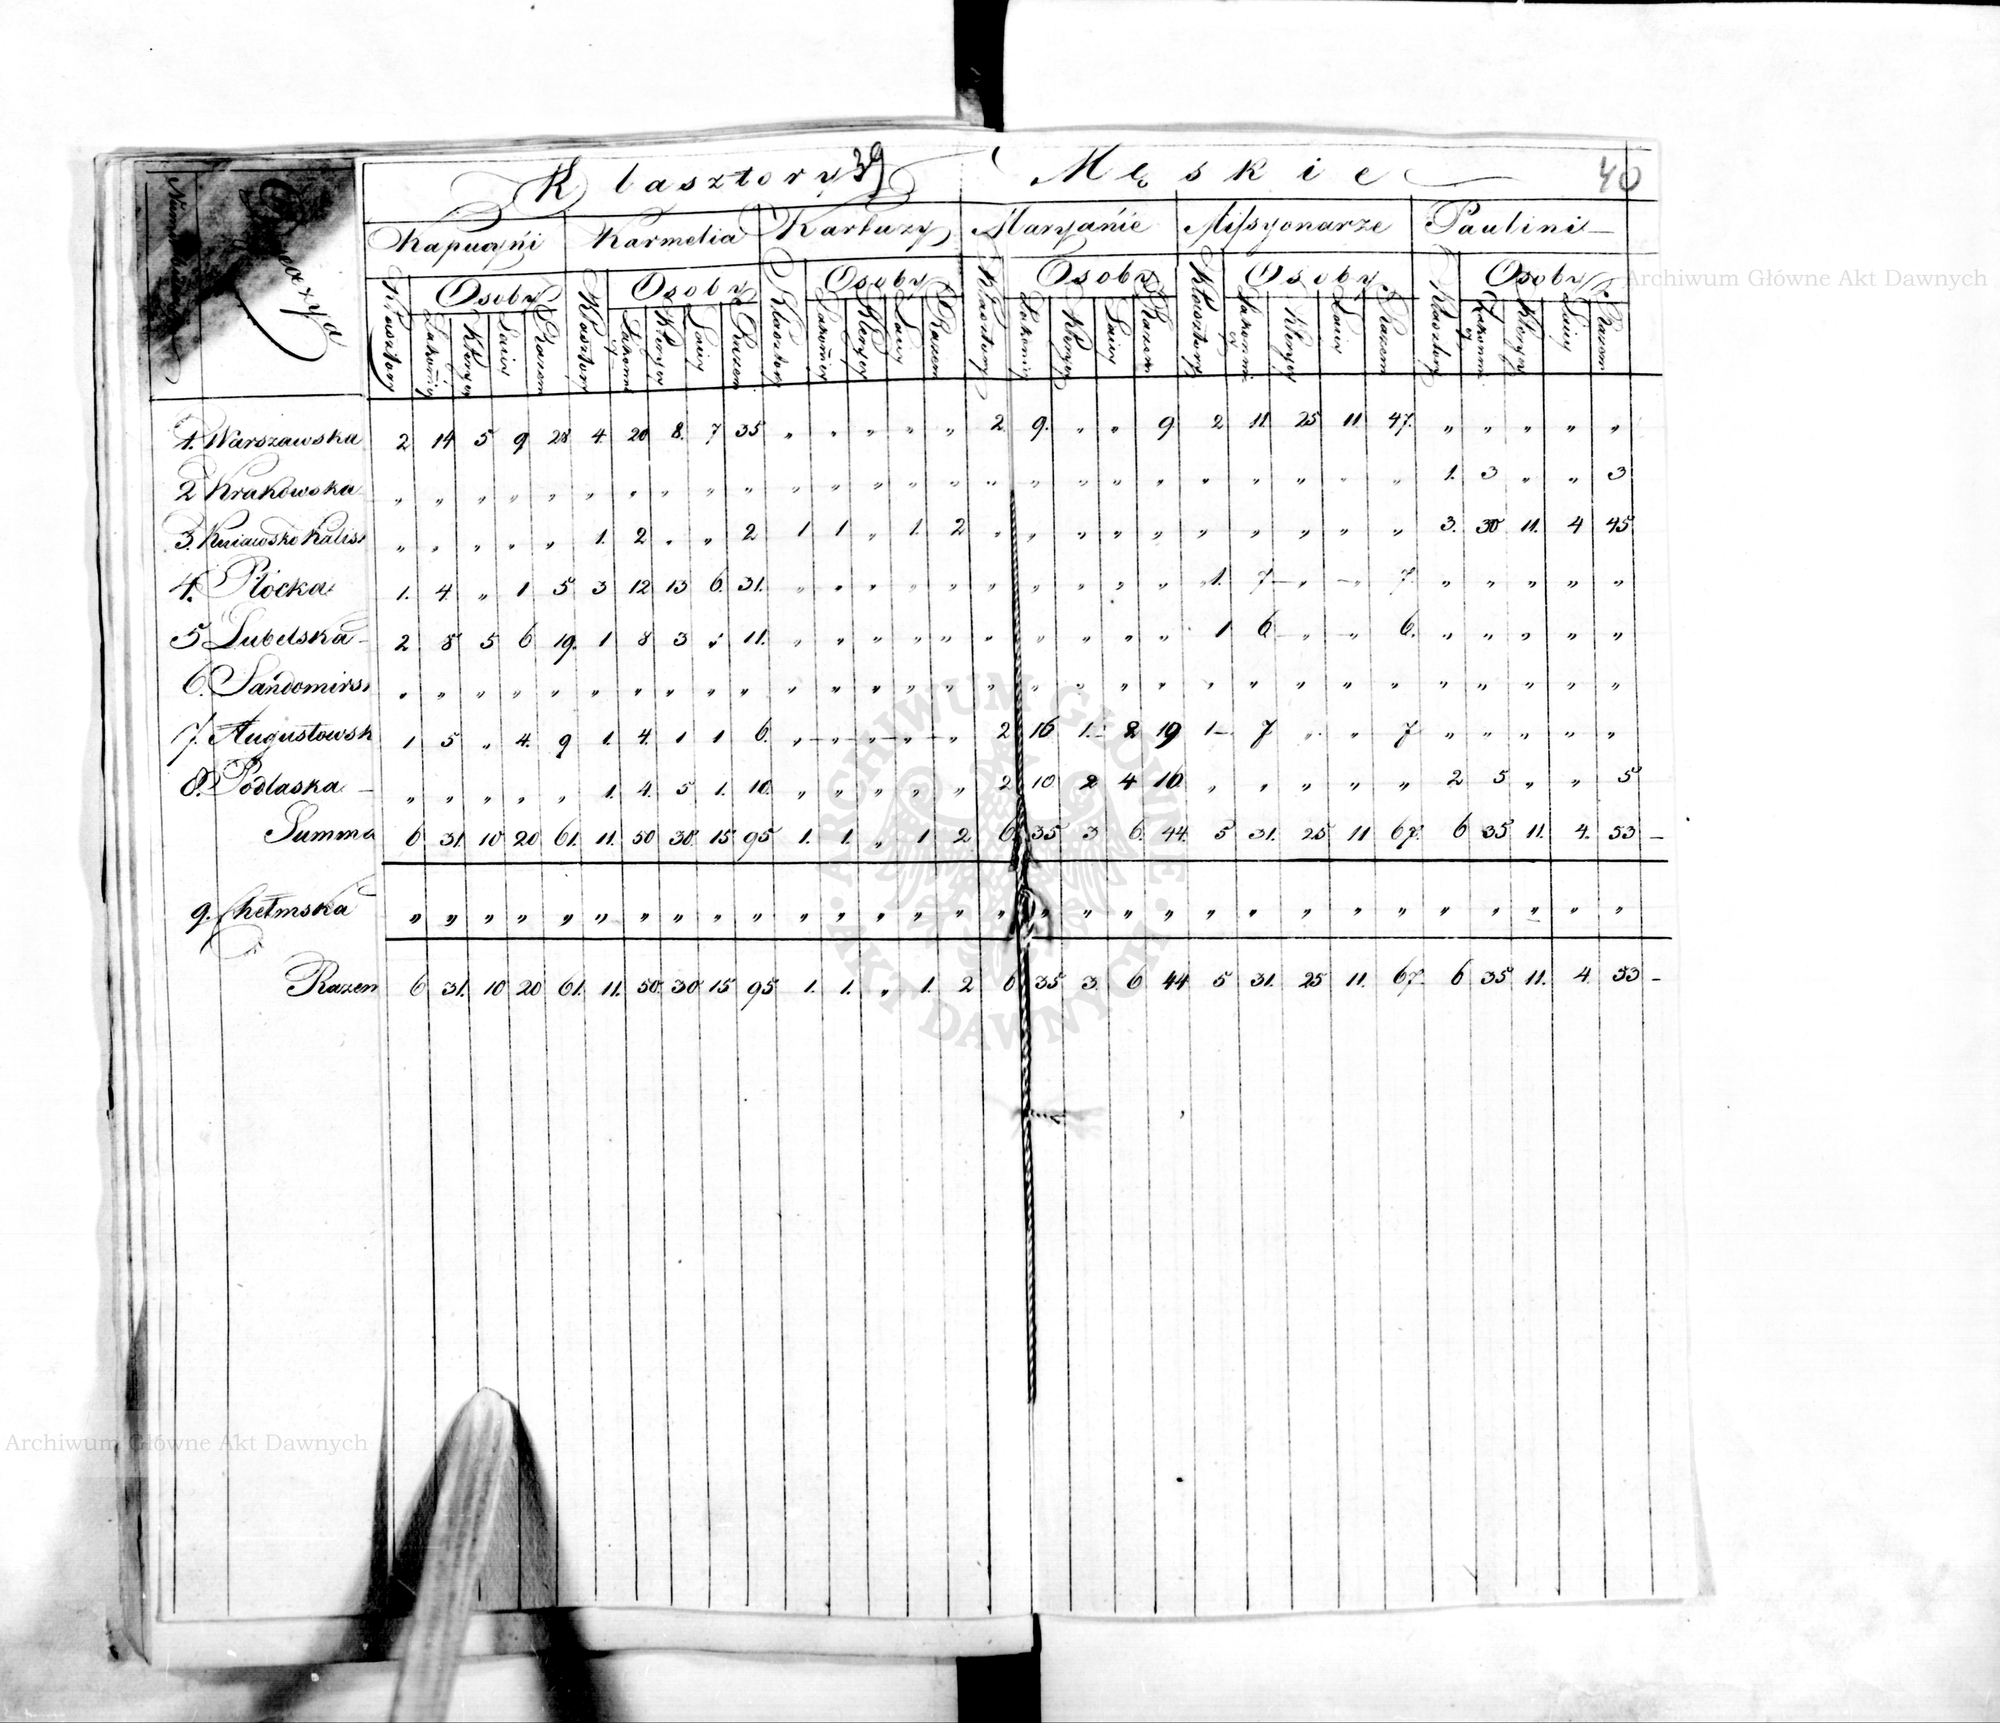 Klasztory 39 Męskie 40
Dyecezya
Kapucyni Karmelici Kartuzy Maryanie Missyonarze Paulini
Osoby Osoby Osoby Osoby Osoby Osoby
Klasztory Zakonnicy Klerycy Laicy Razem Klasztory Zakonni Klerycy Laicy Razem Klasztory Zakonnicy Klerycy Laicy Razem Klasztory Zakonnicy Klerycy Laicy Razem Klasztory Zakonni Klerycy Laicy Razem Klasztory Zakonni Klerycy Laicy Razem
1. Warszawska 2 14 5 9 28 4. 20 8. 7 35 „ „ „ „ „ 2 9. „ „ 9 2 11 25 11 47. „ „ „ „ „
2 Krakowska „ „ „ „ „ „ „ „ „ „ „ „ „ „ „ „ „ „ „ „ „ „ „ „ „ 1. 3 „ „ 3
3. Kuiawsko Kalis „ „ „ „ „ 1. 2 „ „ 2 1 1 „ 1. 2 „ „ „ „ „ „ „ „ „ „ 3. 30 11. 4 45
4. Płocka 1. 4 „ 1 5 3 12 13 6. 31. „ „ „ „ „ „ „ „ „ „ 1. 7 „ – 7. „ „ „ „ „
5 Lubelska 2 8 5 6 19. 1 8 3 „ 11. „ „ „ „ „ „ „ „ „ „ 1 6 „ „ 6. „ „ „ „ „
6. Sandomirs „ „ „ „ „ „ „ „ „ „ „ „ „ „ „ „ „ „ „ „ „ „ „ „ „ „ „ „ „ „
7. Augustowsk 1 5 „ 4. 9 1. 4. 1 1 6. „ „ „ „ „ 2 16 1. 2 19 1 7 „ „ 7 „ „ „ „ „
8. Podlaska „ „ „ „ „ 1. 4. 5 1. 10. „ „ „ „ „ 2 10 2 4 16 „ „ „ „ „ 2 5 „ „ 5
Summa 6 31. 10 20 61. 11. 50 30 15 95 1. 1. „ 1 2 6 35 3 6. 44. 5 31. 25 11 67. 6 35 11. 4. 53 –
9. Chełmska „ „ „ „ „ „ „ „ „ „ „ „ „ „ „ „ „ „ „ „ „ „ „ „ „ „ „ „ „ „
Razem 6 31. 10 20 61. 11. 50 30 15 95 1. 1. „ 1. 2 6 35 3. 6 44 5 31. 25 11. 67. 6 35 11. 4. 53 –
Archiwum Główne Akt Dawnych
ARCHIWUM GŁÓWNE AKT DAWNYCH
Archiwum Główne Akt Dawnych